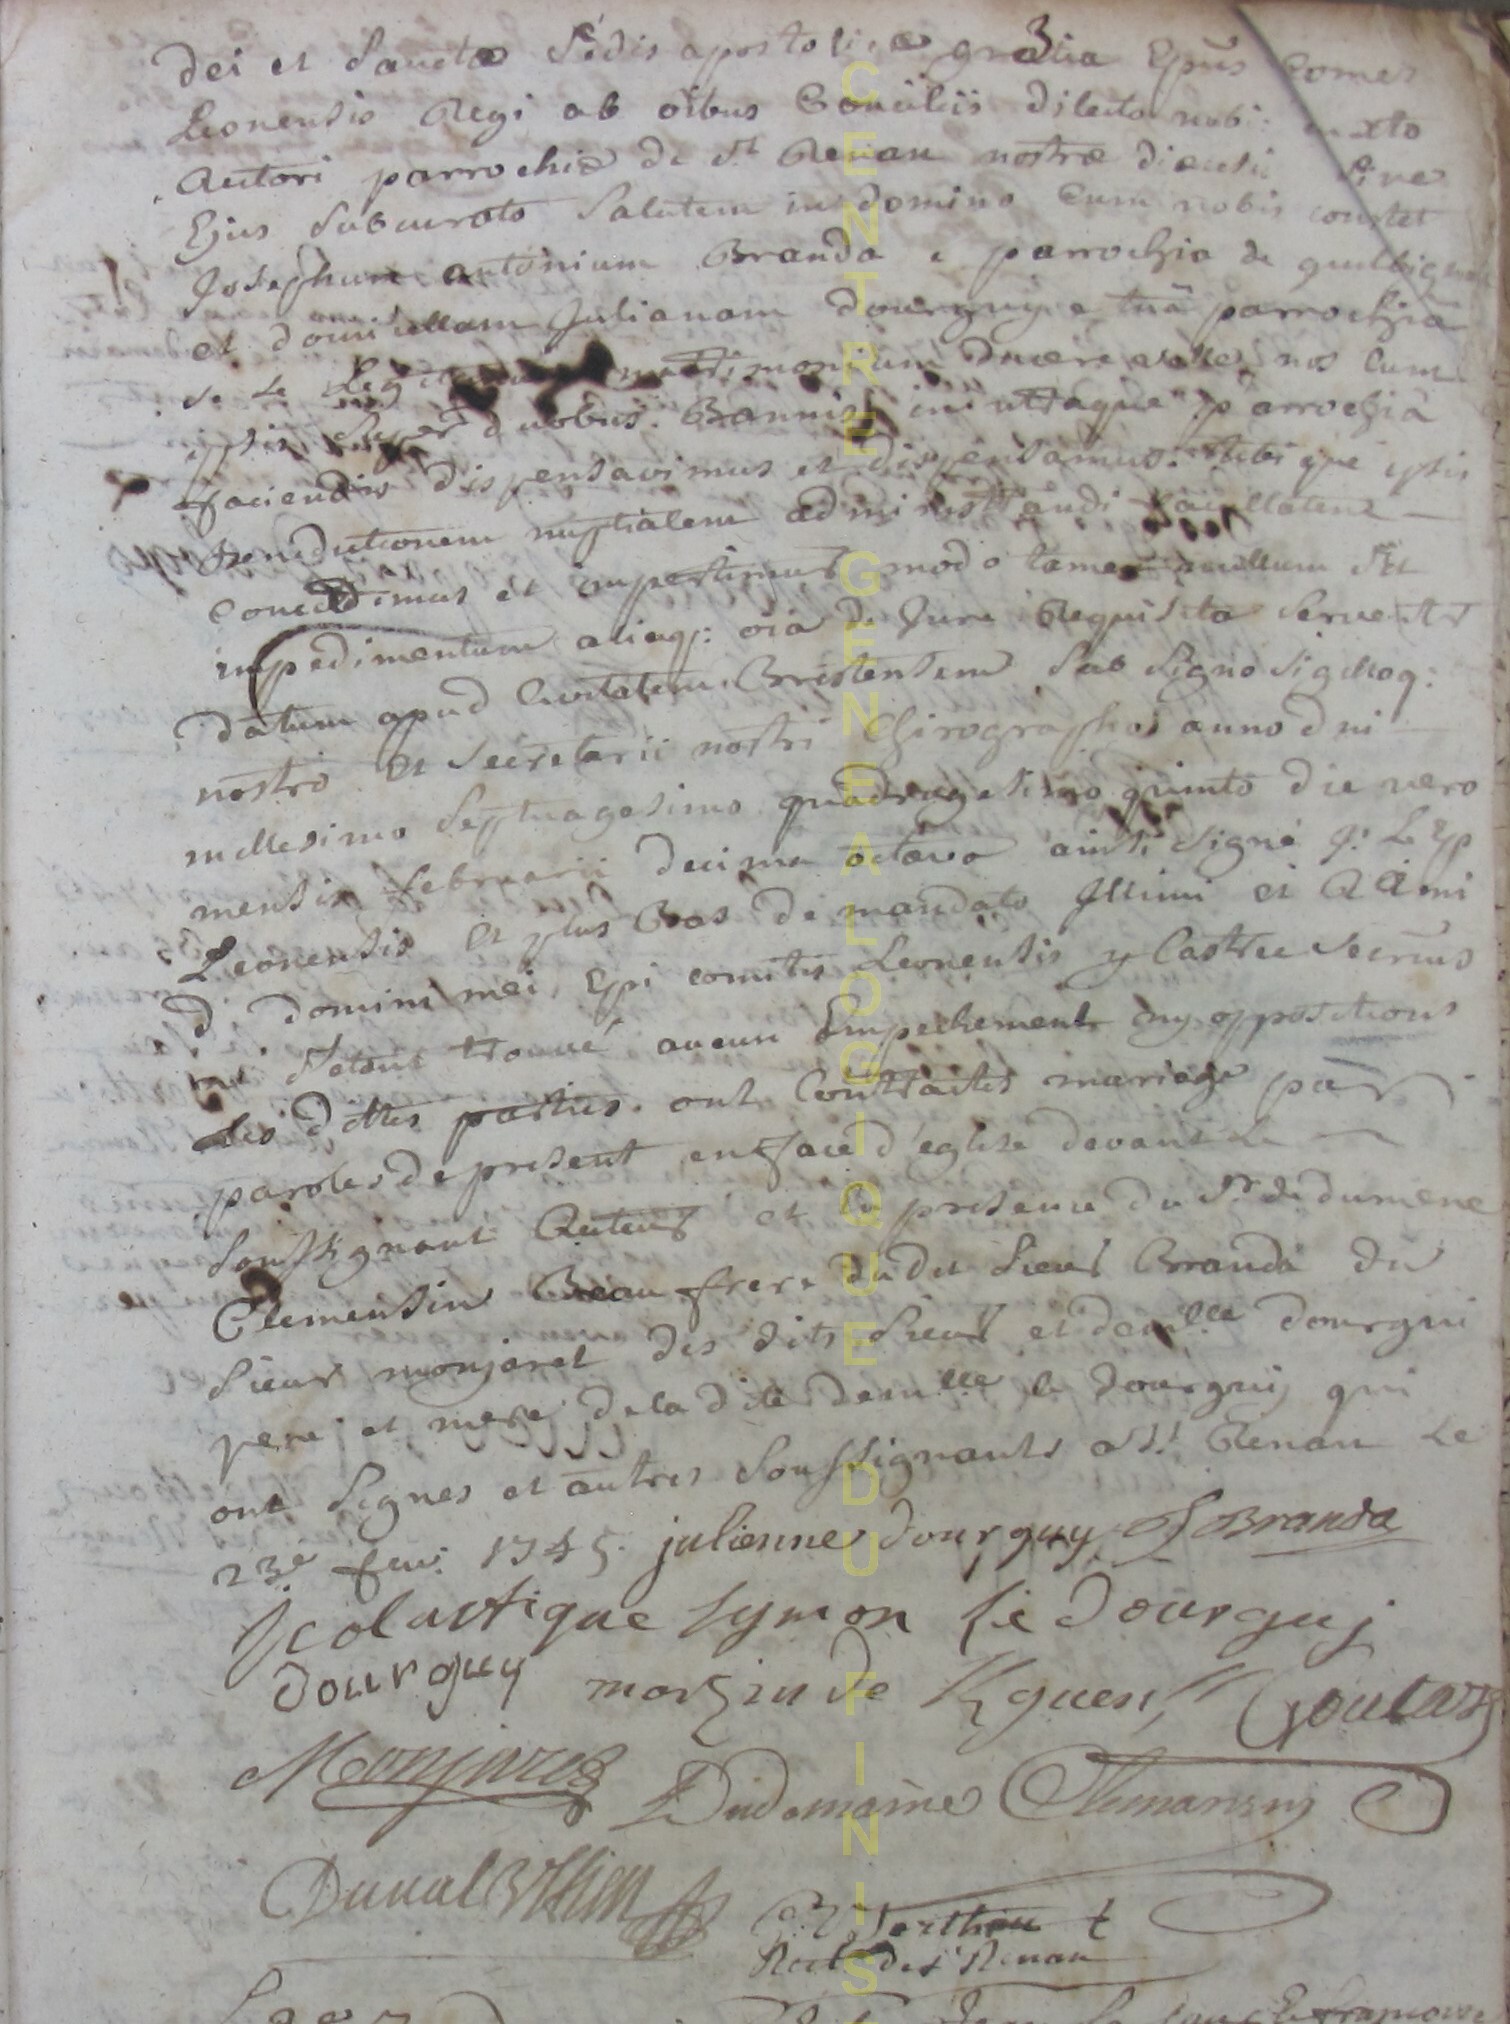 Dei et Sanctæ Sedis apostolicæ gratia Epūs Comes
Leonensis Regi ab oībus Consiliis dilecto nobis in xto
Rectori parrochiæ de St Renan nostræ diæcesis sive
Ejus Subcurato Salutem in domino Cum nobis constet
Josephum antonium Branda e parrochia de guilbignau
et domicellam Julianam dourguy e tuâ parrochiâ
se se Legitimum matrimonium ducere velle nos Cum
ipsis super duobus Bannis in utraque parrochiâ
faciendis dispensavimus et dispensamus. tibi que ipsis
benedictionem nuptialem administrandi facultatem
Concedimus et impertimus modo tamen nullum sit
impedimentum aliaq: oīa de Jure Requisita serventr
datum apud Civitatem Brestensem Sub Signo Sigilloq:
nostro et Secretarii nostri Chirographo anno dni
millesimo Septuagesimo quadragesimo quinto die vero
mensis februarii decima octava ainsi Signé j: L Ep
Leonensis et plus Bas de mandato Illimi et RRmi
d. domini mei Epi comitis Leonensis y Castrec Secrius
ne s'etant trouvé aucun Empechement ny oppositions
les dittes parties ont Contractés mariage par
paroles de present en face d'eglise devant Le
Soussignant Recteur et en presence du Sr dudumene
Clemensin Beau frere du dit Sieur Branda du
Sieur monjaret des dits Sieur et demlle dourgui
pere et mere de la dite demlle le dourguy qui
ont Signes et autres Soussignants a St Renan Le
23e fev. 1745. julienne dourguy J Branda
Scolastique Symon Le Dourguy
Dourguy morzin de Kguen Goutar
Monjaret Dudomaine Clemansin
Duval
Berthou
Rectr de St Renan